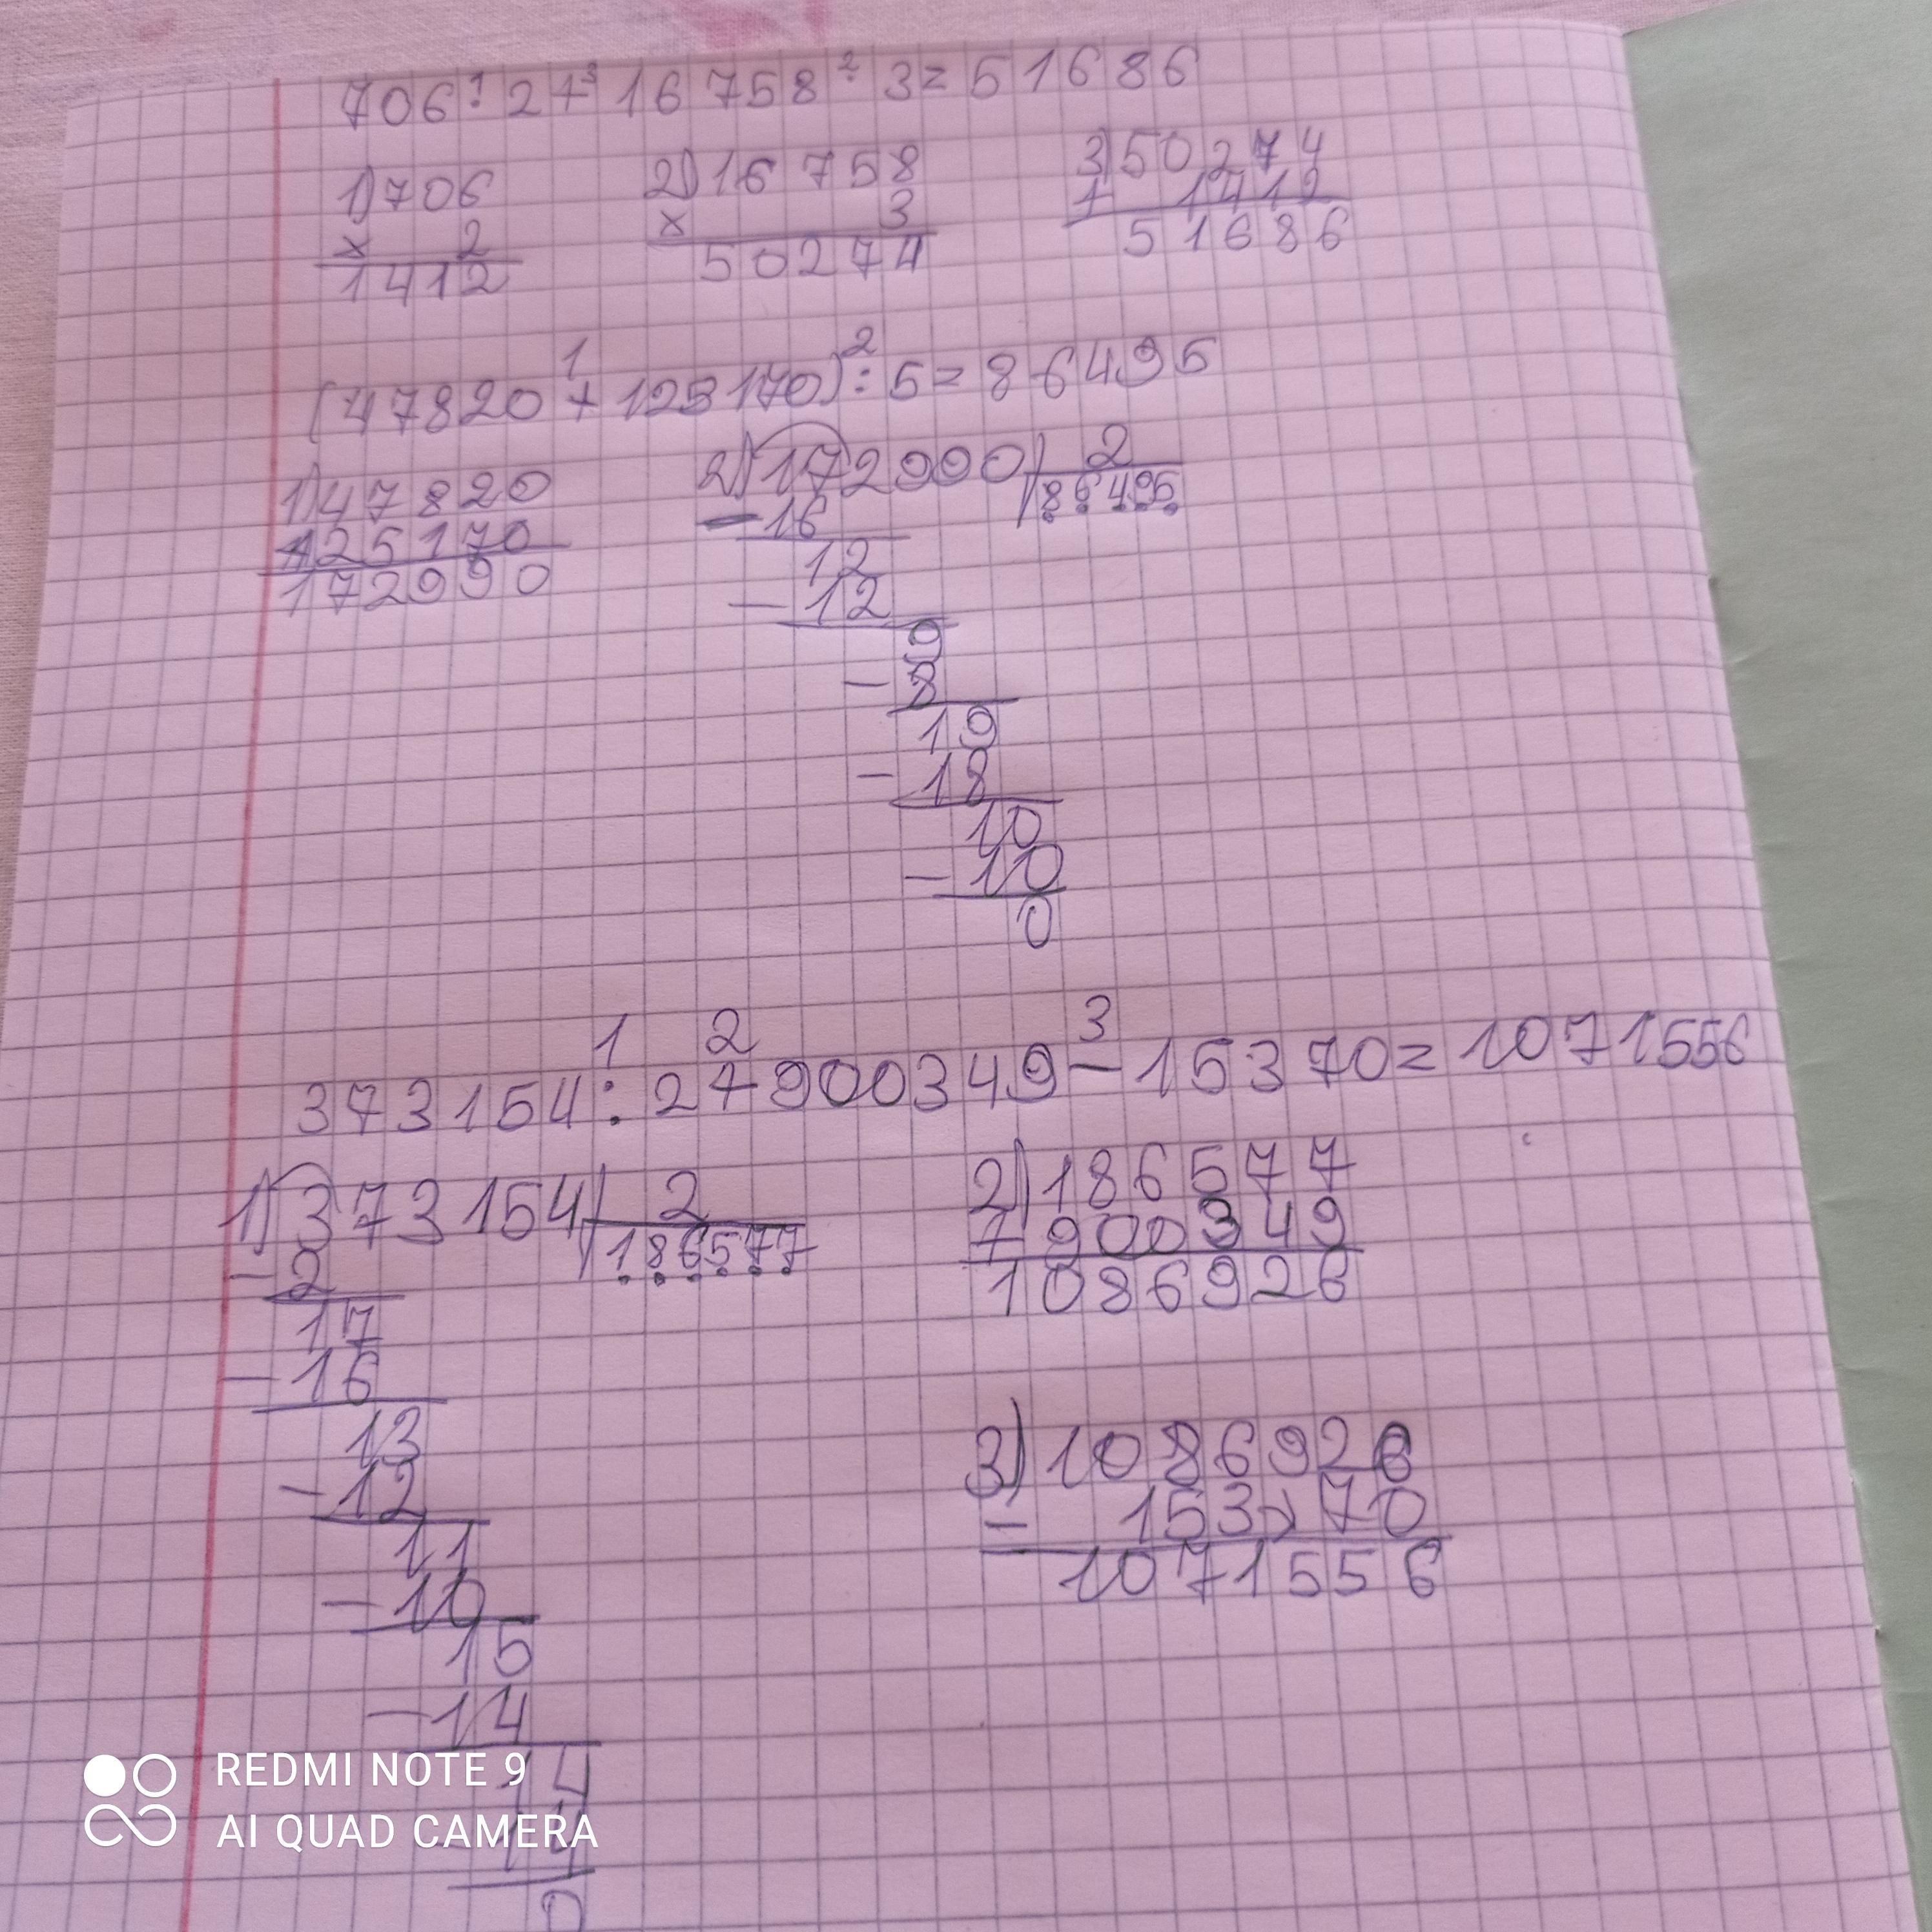 706:2+16 758:3=51686
1 3 2
1)706
x 2
1412
2)16 758
x 3
50274
3)50274
1412
51686
1 2
(47820+125170):5=86495
1)47820
125170
172990
2)172990 2
86495
-16
12
-12
9
-8
19
-18
10
-10
0
1 2 3
373154:2+900349-15370=1071556
1)373154 2
186577
-2
17
-16
13
-12
11
-10
15
-14
14
14
0
2)186577
+900349
1086926
3)1086926
- 15370
1071556
REDMI NOTE 9
AI QUAD CAMERA